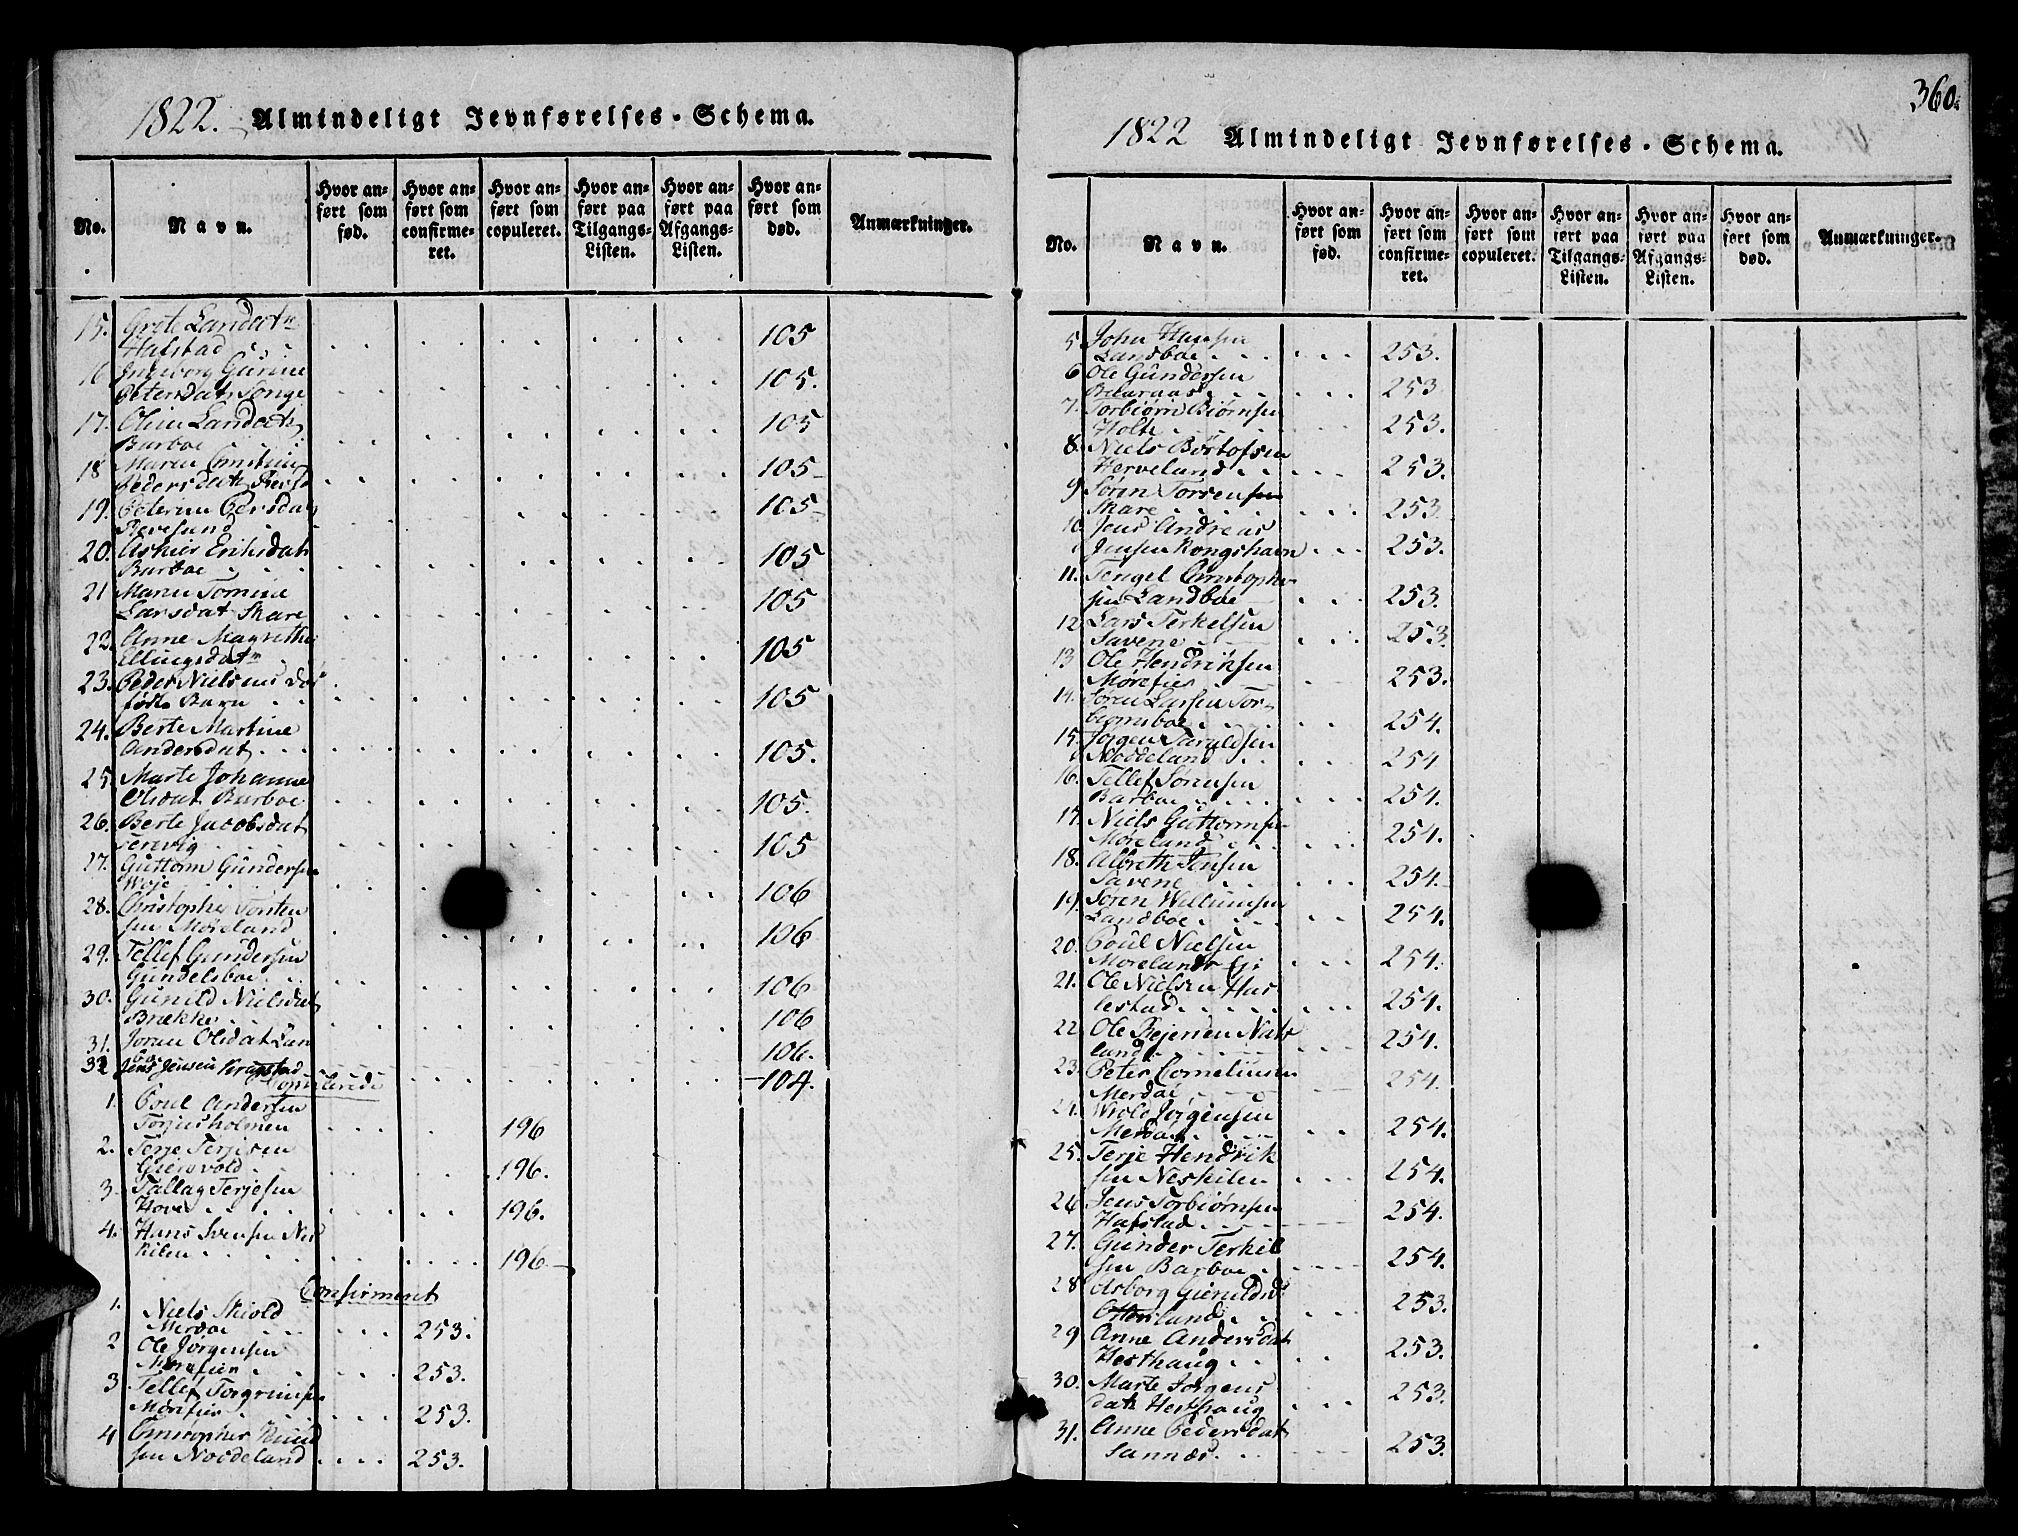 1822. Almindeligt Jevnførelses-Schema.
No. Navn. Hvor anført som fød. Hvor anført som confirmeret. Hvor anført som copuleret. Hvor anført paa Tilgangs-Listen. Hvor anført paa Afgangs-Listen. Hvor anført som død. Anmærkninger.
15. Grete Larsdatr
Hafstad 105
16 Ingeborg Gurine
Petersdatr Songe 105.
17. Oline Larsdatr
Barboe 105
18 Maren Cristine
Pedersdatr 105
19. Peterine Persdatr
Revesand 105
20. Eriksdatr
Barboe 105
21 Maren Tomine
Larsdat Skare 105
22. Anne Magrethe
Ellingsdatr 105
23. Peder Nielsens død
fødte Barn 105
24. Berte Martine
Andersdat 105.
25. Marte Johanne
Olsdat Barboe 105.
26. Berte Jacobsdat
105
27. Guttorm Gundersen
Woje 106
28. Christopher Torsten
sen Møreland 106
29. Tellef Gundersen
Gundelsboe 106
30. Gunild Nielsdat
Brække 106
31. Joran Olsdat Lan
boe 106.
32 Jens Jensen 104.
Copulerede
1. Poul Andersen
Torjusholmen 196
2. Terje Terjesen
Gjersvold 196.
3. Tallag Terjesen
Hove 196.
4. Hans Svensen Nes
kilen 196
Confirmeret
1. Niels Skiold
Merdøe 253.
2 Ole Jørgensen
Morefier 253.
3 Tellef Torgrimsen
Morefier 253.
4 Christopher Knud
sen Noddeland 253.
360
1822 Almindeligt Jevnførelses-Schema.
No. Navn. Hvor anført som fød. Hvor anført som confirmeret. Hvor anført som copuleret. Hvor anført paa Tilgangs-Listen. Hvor anført paa Afgangs-Listen. Hvor anført som død. Anmærkninger.
5 John Hansen
Landboe 253.
6 Ole Gundersen
253
7. Torbiørn Biørnsen
Holte 253.
8. Niels Børtofsen
Herveland 253.
9 Søren Torsensen
Skare 253
10. Jens Andreas
Jensen Kongshavn 253.
11. Tengel Christopher
sen Landboe 253.
12 Lars Terkelsen
Savene 253
13 Ole Hendriksen
Morefier 253.
14. Søren Larsen Tor
biønsboe 254.
15. Jørgen Taraldsen
Noddeland 254
16. Tellef Sørensen
Barboe 254.
17. Niels Guttormsen
Møreland 254.
18. Albreth Jensen
Savene 254.
19. Søren Wellumsen
Landboe 254.
20. Poul Nielsen
Moreland 254.
21. Ole Nielsen Has
lestad 254.
22. Ole Rejersen Nats
land 254.
23. Peter Corneliusen
Merdøe 254.
24. Wrold Jørgensen
Merdøe 254.
25. Terje Hendrik
sen Neskilen 254.
26 Jens Torbiørnsen
Hafstad 254.
27. Gunder Terkel
sen Barboe 254.
28 Asborg Gieruldsd
Otterland 253.
29 Anne Andersdat
Hesthaug 253.
30. Marte Jørgens
datr Hesthaug 253.
31. Anne Pedersdat
Sannæs 253.